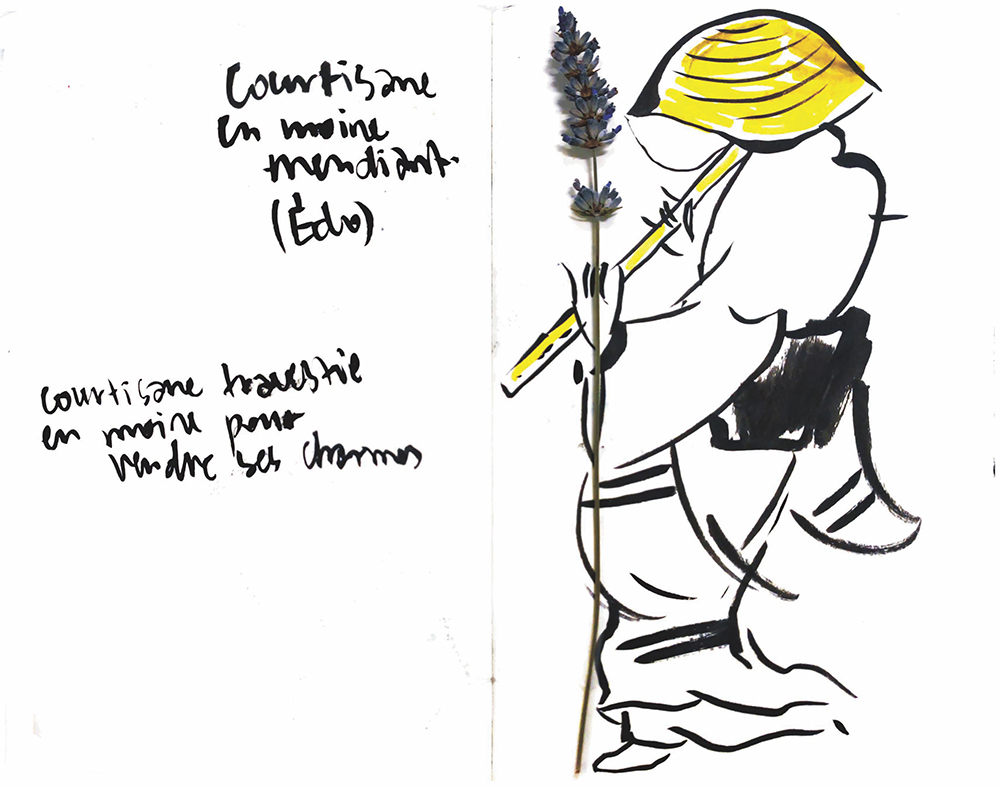 Courtisane
en moine
mendiant.
(Édo)
courtisane travestie
en moine pour
vendre ses charmes